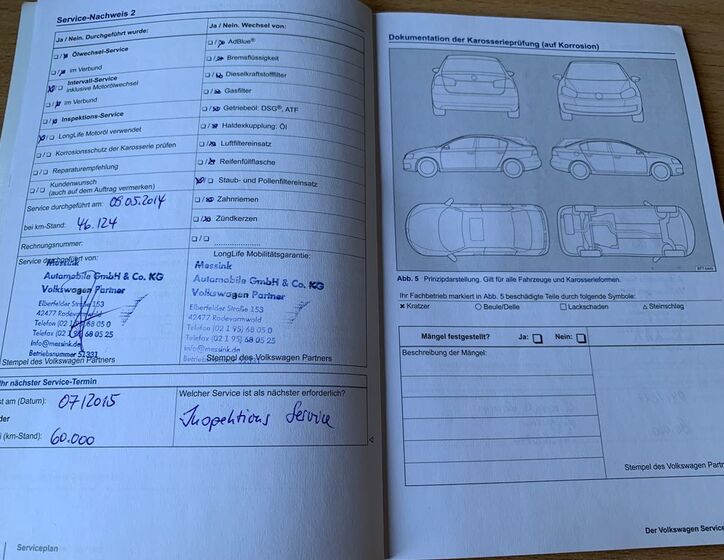 Service-Nachweis 2
Ja / Nein. Durchgeführt wurde:
Ölwechsel-Service
im Verbund
Intervall-Service
inklusive Motorölwechsel
im Verbund
Inspektions-Service
LongLife Motoröl verwendet
Korrosionsschutz der Karosserie prüfen
Reparaturempfehlung
Kundenwunsch
(auch auf dem Auftrag vermerken)
Service durchgeführt am: 09.05.2014
bei km-Stand: 46.124
Rechnungsnummer:
Service durchgeführt von:
Messink
Automobile GmbH & Co. KG
Volkswagen Partner
Elberfelder Straße 153
42477 Radevormwald
Telefon (02 1 95) 68 05 0
Telefax (02 1 95) 68 05 25
Info@messink.de
Betriebsnummer 51331
Stempel des Volkswagen Partners
Ja / Nein. Wechsel von:
AdBlue®
Bremsflüssigkeit
Dieselkraftstofffilter
Gasfilter
Getriebeöl: DSG®, ATF
Haldexkupplung: Öl
Luftfiltereinsatz
Reifenfüllflasche
Staub- und Pollenfiltereinsatz
Zahnriemen
Zündkerzen
LongLife Mobilitätsgarantie:
Messink
Automobile GmbH & Co. KG
Volkswagen Partner
Elberfelder Straße 153
42477 Radevormwald
Telefon (02 1 95) 68 05 0
Telefax (02 1 95) 68 05 25
Info@messink.de
Betriebsnummer
Stempel des Volkswagen Partners
Ihr nächster Service-Termin
ist am (Datum): 07/2015
oder
bei (km-Stand): 60.000
Welcher Service ist als nächster erforderlich?
Inspektions Service
Serviceplan
Dokumentation der Karosserieprüfung (auf Korrosion)
Abb. 5 Prinzipdarstellung. Gilt für alle Fahrzeuge und Karosserieformen.
Ihr Fachbetrieb markiert in Abb. 5 beschädigte Teile durch folgende Symbole:
× Kratzer ○ Beule/Delle □ Lackschaden △ Steinschlag
Mängel festgestellt? Ja: □ Nein: □
Beschreibung der Mängel:
Stempel des Volkswagen Partn
Der Volkswagen Service